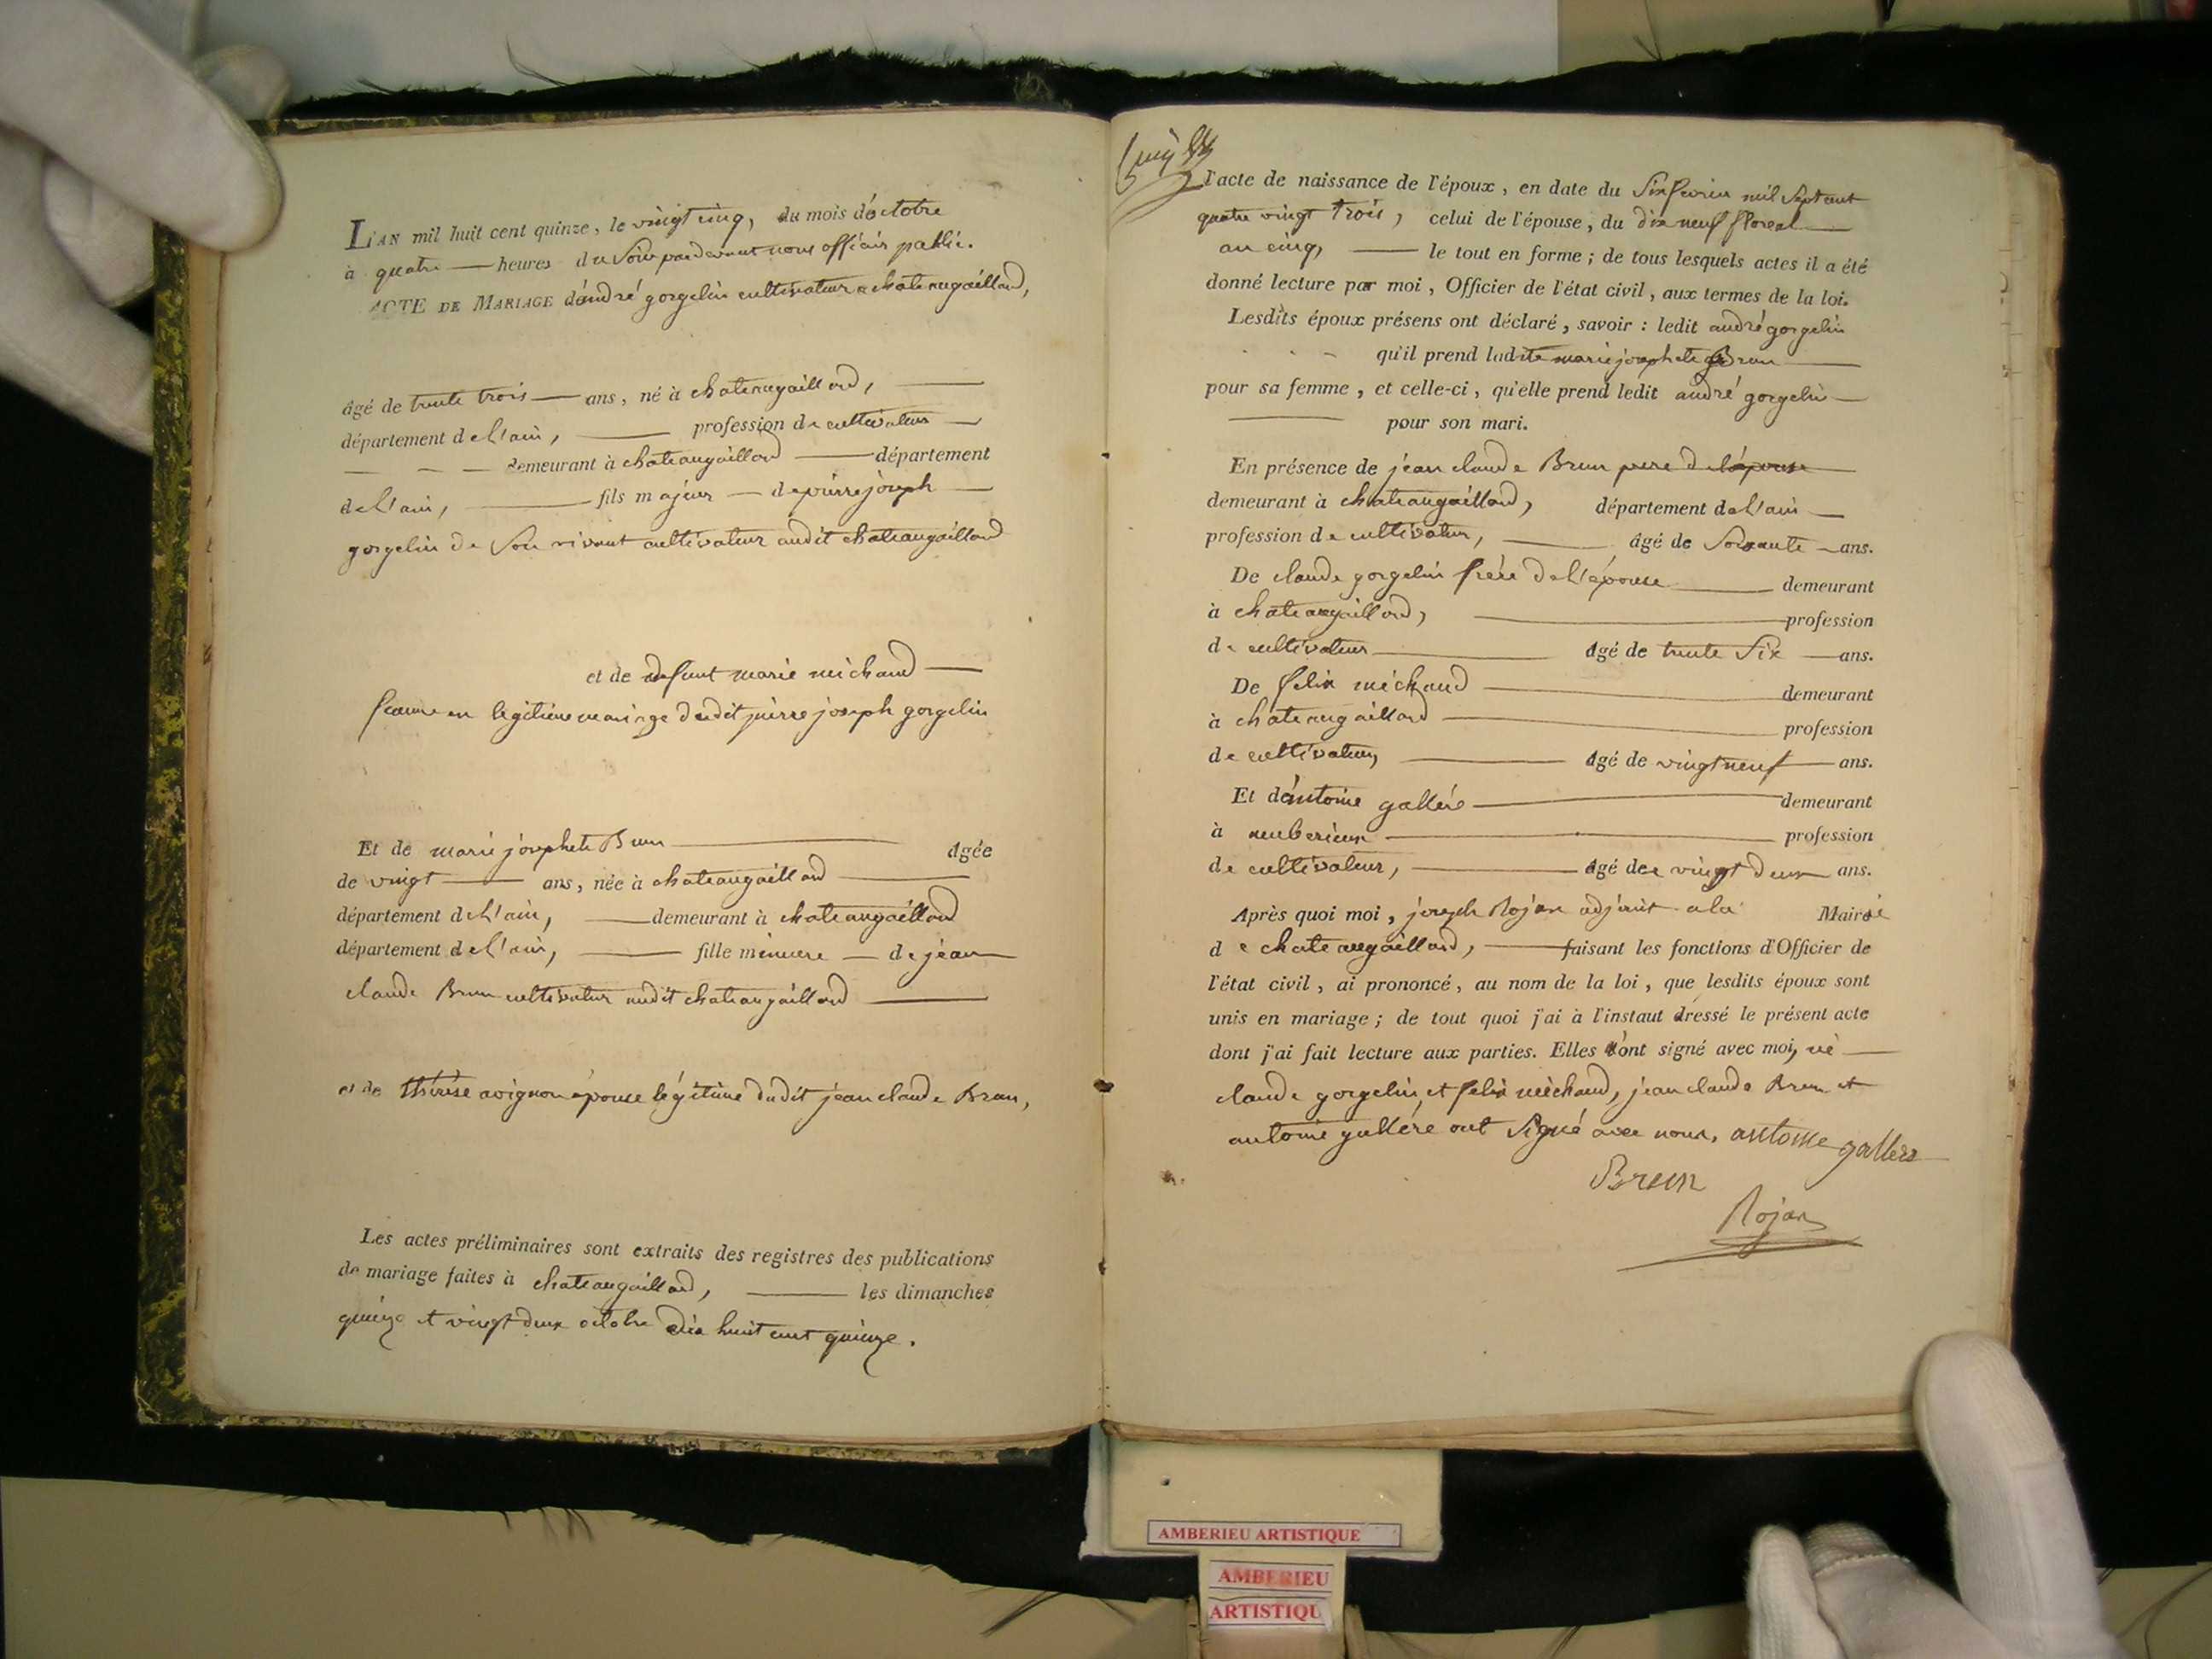 L'AN mil huit cent quinze, le vingt cinq, du mois d'octobre
à quatre heures du Soir pardevant nous officier public.
ACTE DE MARIAGE d'andré gorgelin cultivateur a chateaugaillard,
âgé de trente trois ans, né à chateaugaillard,
département de l'ain, profession de cultivateur
demeurant à chateaugaillard département
de l'ain, fils majeur de pierre joseph
gorgelin de Son vivant cultivateur audit chateaugaillard
et de defunt marie michaud
femme en legitime mariage dudit pierre joseph gorgelin
Et de marie josephete Brun agée
de vingt ans, née à chateaugaillard
département de l'ain, demeurant à chateaugaillard
département de l'ain, fille mineure de jean
claude Brun cultivateur audit chateaugaillard
et de thérèse avignon épouse légitime dudit jean claude Brun,
Les actes préliminaires sont extraits des registres des publications
de mariage faites à chateaugaillard, les dimanches
quinze et vingt deux octobre dix huit cent quinze.
l'acte de naissance de l'époux, en date du Six fevrier mil Sept cent
quatre vingt trois, celui de l'épouse, du dix neuf floreal
an cinq, le tout en forme; de tous lesquels actes il a été
donné lecture par moi, Officier de l'état civil, aux termes de la loi.
Lesdits époux présens ont déclaré, savoir : ledit andré gorgelin
qu'il prend ladite marie josephete Brun
pour sa femme, et celle-ci, qu'elle prend ledit andré gorgelin
pour son mari.
En présence de jean claude Brun pere de l'épouse
demeurant à chateaugaillard, département de l'ain
profession de cultivateur, âgé de Soixante ans.
De claude gorgelin frère de l'épouse demeurant
à chateaugaillard, profession
de cultivateur âgé de trente Six ans.
De felix michaud demeurant
à chateaugaillard profession
de cultivateur, âgé de vingt neuf ans.
Et d'antoine galléré demeurant
à amberieux profession
de cultivateur, âgé de vingt deux ans.
Après quoi moi, joseph Rojan adjoint a la Mairie
de chateaugaillard, faisant les fonctions d'Officier de
l'état civil, ai prononcé, au nom de la loi, que lesdits époux sont
unis en mariage; de tout quoi j'ai à l'instaut dressé le présent acte
dont j'ai fait lecture aux parties. Elles n'ont signé avec moi, ni
claude gorgelin, et felix michaud, jean claude Brun et
antoine galléré ont Signé avec nous, antoine gallere
Brun
Rojan
AMBERIEU ARTISTIQUE
AMBERIEU
ARTISTIQU